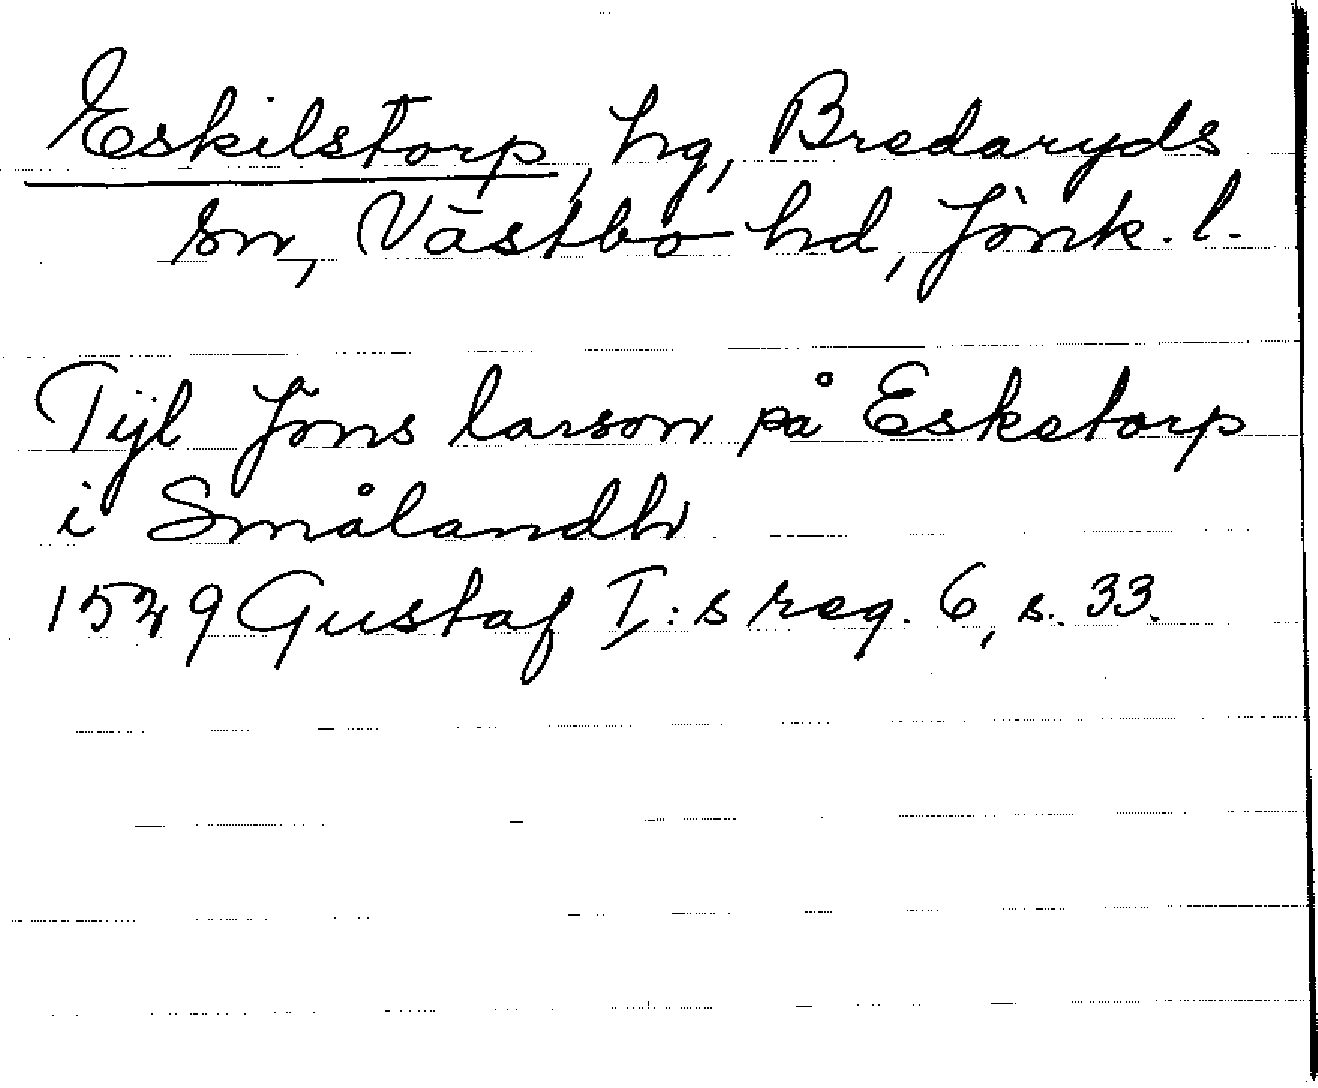 Eskilstorp, hg, Bredaryds
sn, Västbo hd, Jönk. l.
Tijl Jöns larson på Esketorp
i Smålandh
1529 Gustaf I:s reg. 6, s. 33.